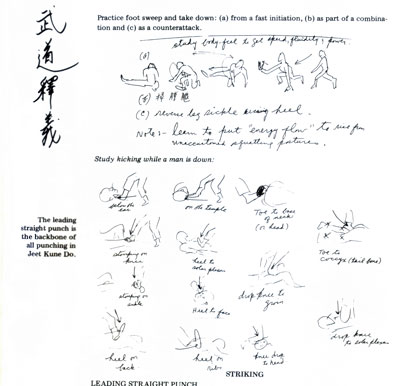 武道釋義
Practice foot sweep and take down: (a) from a fast initiation, (b) as part of a combina-
tion and (c) as a counterattack.
study body feel to get speed, fluidity & power
(A)
(B) 掃腿
(C) reverse leg sickle using heel.
Note:- learn to put "energy flow" to rise from
unaccustomed squatting posture.
Study kicking while a man is down:
below the ear
on the temple
Toe to base of neck
(or head)
The leading
straight punch is
the backbone of
all punching in
Jeet Kune Do.
stomping on knee
heel to solar plexus
Toe to
coccyx (tail bone)
stomping on
Heel to face
drop knee to
groin
drop knee
to solar plexus
heel on
back
heel on
ribs
knee drop
to head
STRIKING
LEADING STRAIGHT PUNCH